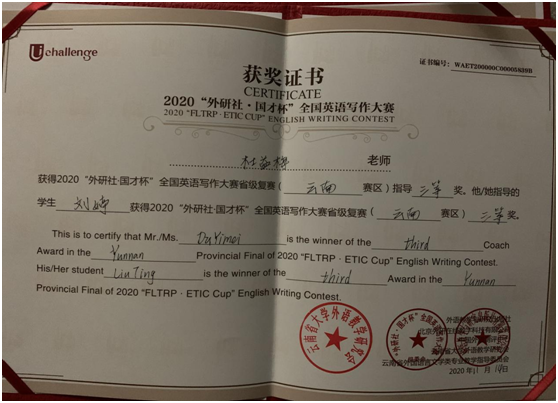 Uchallenge
证书编号：WAET200000C00005639B
获奖证书
CERTIFICATE
2020“外研社·国才杯”全国英语写作大赛
2020 "FLTRP · ETIC CUP" ENGLISH WRITING CONTEST
杜益梅 老师
获得2020“外研社·国才杯”全国英语写作大赛省级复赛（云南赛区）指导三等奖。他/她指导的
学生刘婷获得2020“外研社·国才杯”全国英语写作大赛省级复赛（云南赛区）三等奖。
This is to certify that Mr./Ms. Du Yimei is the winner of the third Coach
Award in the Yunnan Provincial Final of 2020 "FLTRP · ETIC Cup" English Writing Contest.
His/Her student Liu Ting is the winner of the third Award in the Yunnan
Provincial Final of 2020 "FLTRP · ETIC Cup" English Writing Contest.
云南省大学外语教学研究会
云南省外国语言文学类专业教学指导委员会
2020年11月19日